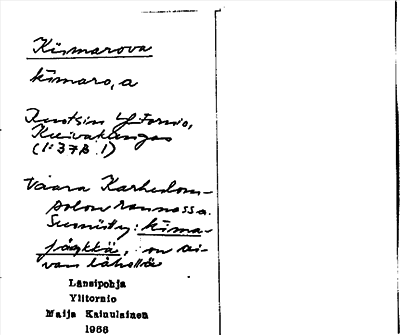 Kiimarova
kiimaro, a
Ruotsin Ylitornio,
Kuivakangas
(1:37B.1)
Vaara Karhulom-
polon rannassa.
kiima-
jääkkä, on ai-
van lähellä
Länsipohja
Ylitornio
Maija Kainulainen
1966